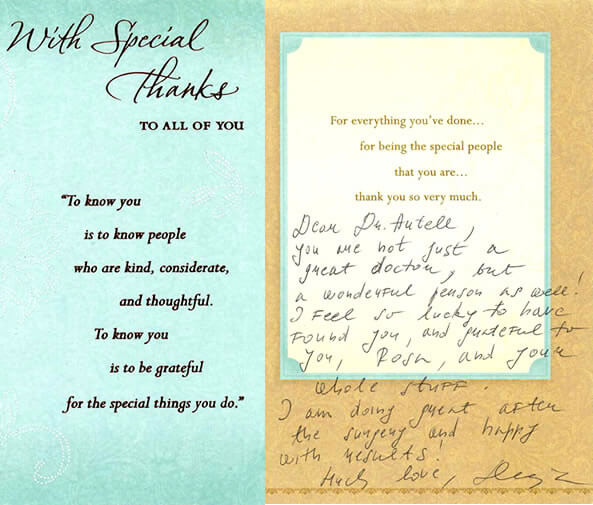 With Special
Thanks
TO ALL OF YOU
“To know you
is to know people
who are kind, considerate,
and thoughtful.
To know you
is to be grateful
for the special things you do.”
For everything you've done...
for being the special people
that you are...
thank you so very much.
Dear Dr. Antell,
you are not just a
great doctor, but
a wonderful person as well!
I feel so lucky to have
found you, and grateful to
you, Rosa, and your
whole stuff.
I am doing great after
the surgery and happy
with results!
Much love,